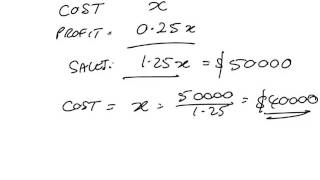 COST x
PROFIT: 0.25x
SALES: 1.25x = $50000
COST = x = 50000/1.25 = $40000